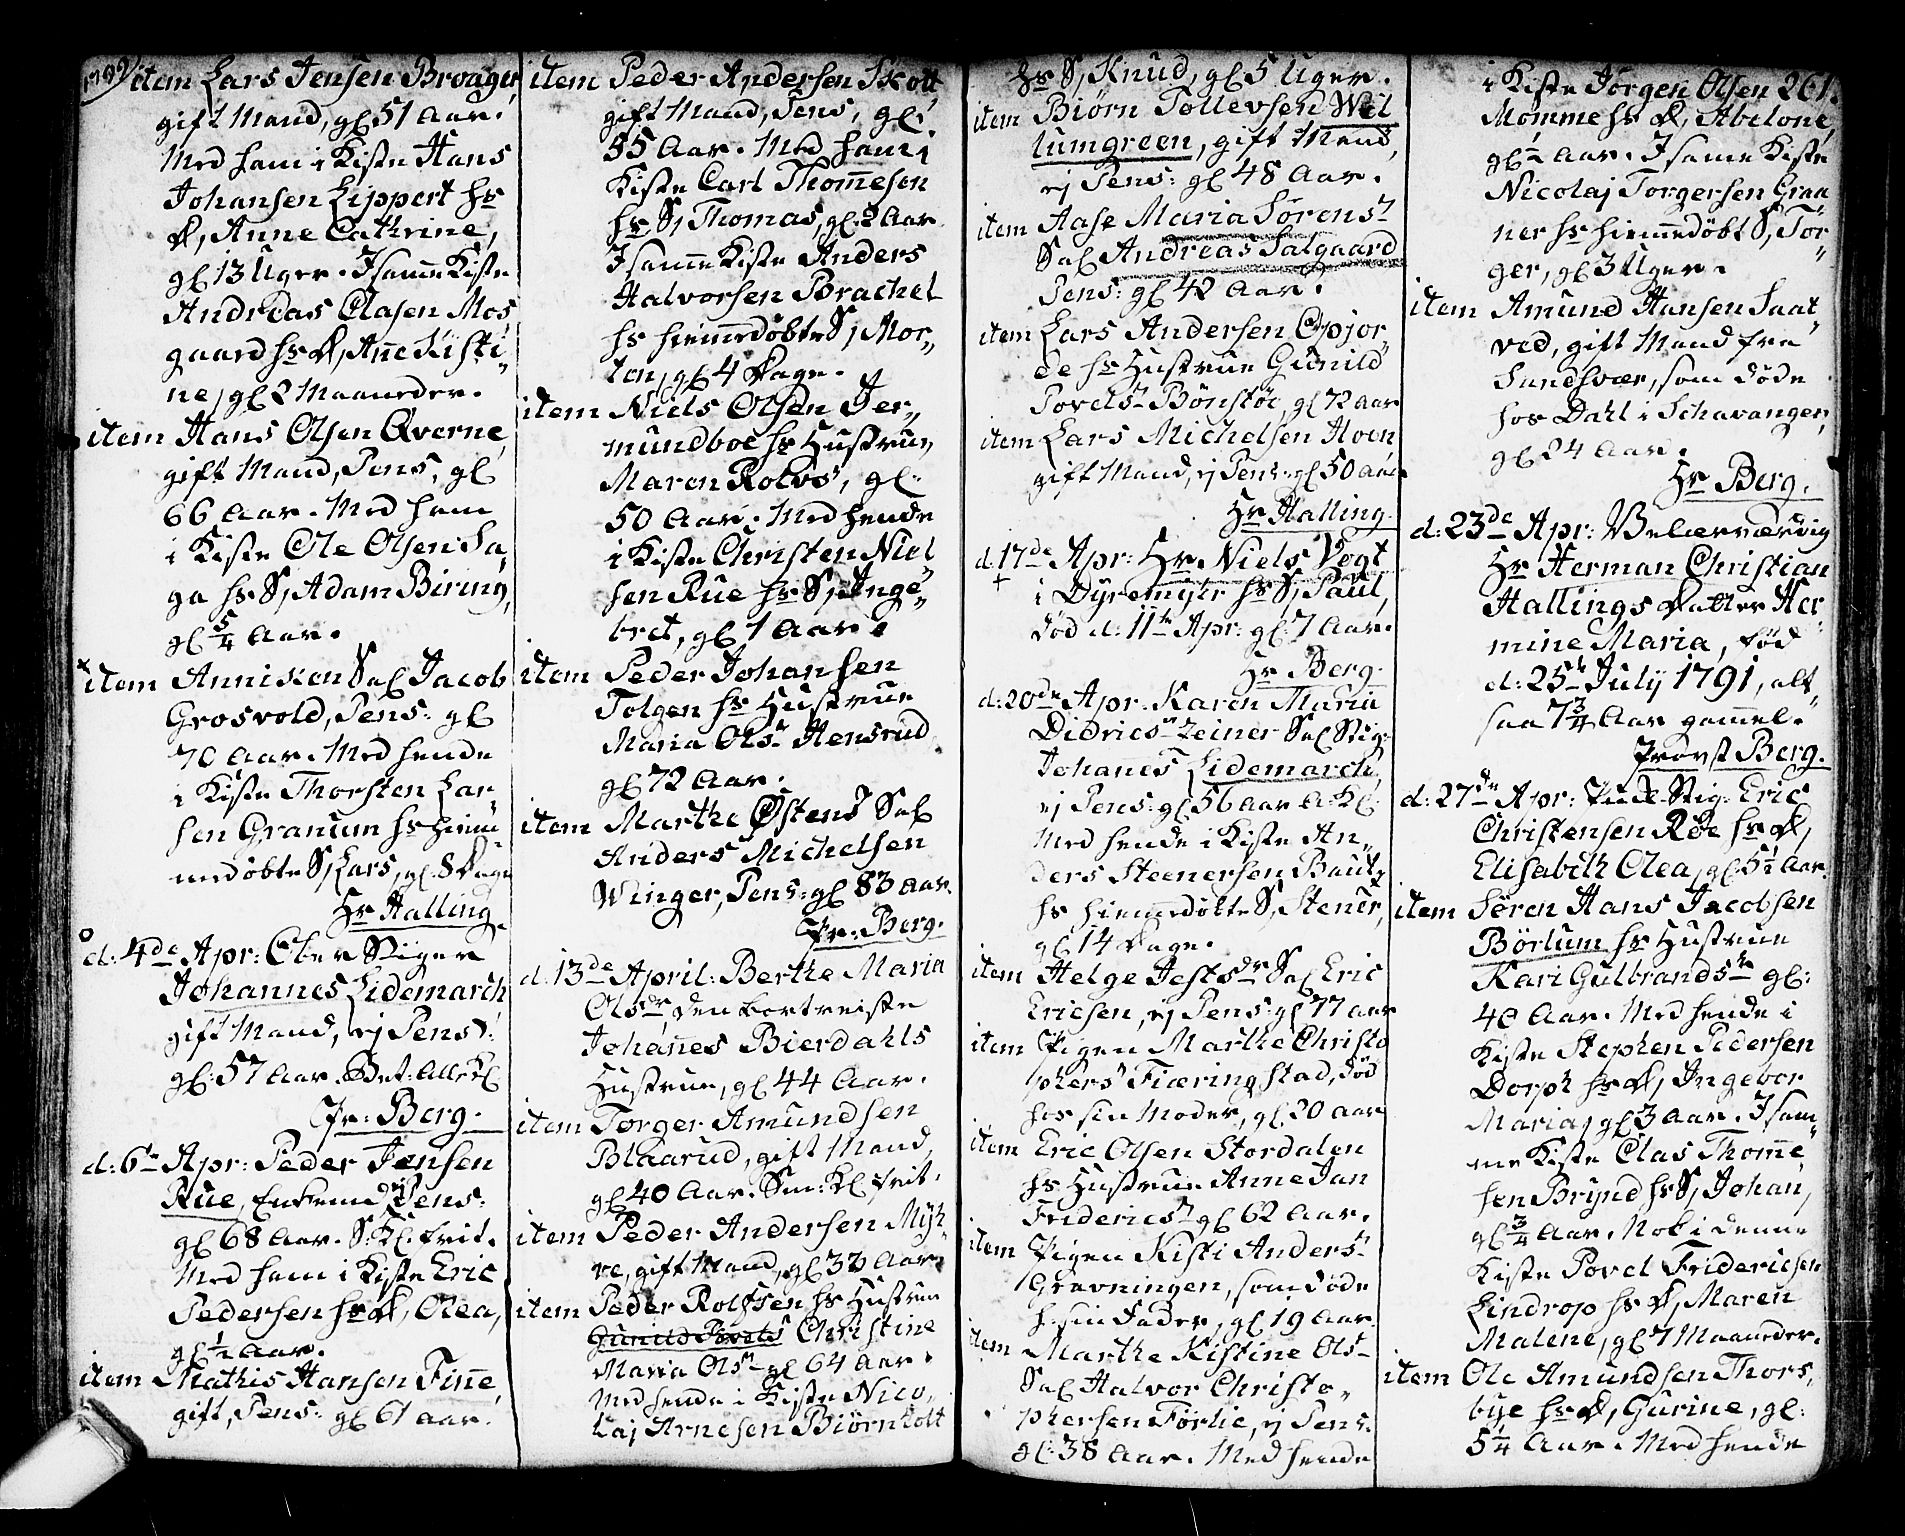 1792
item Lars Jensen Broager
gift Mand, gl 51 Aar.
Med ham i Kiste Hans
Johansen Lippert hs
D, Anne Cathrine,
gl 13 Uger. I samme Kiste
Andreas Olasen Mos
gaard hs D, Anne Kisti¬
ne, gl 2 Maaneder.
item Hans Olsen Qverne,
gift Mand, Pens, gl
66 Aar. Med ham
i Kiste Ole Olsen Sa¬
ga hs S, Adam Biring,
gl 5/4 Aar.
+ item Anniken Sal Jacob
Grosvold, Pens: gl
70 Aar. Med hende
i Kiste Thorsten Lar¬
sen Granum hs hiem¬
medøbte S, Lars, gl. 8 Dage
Hr Halling.
d: 4de Apr: Ober Stiger
Johannes Lidemarck
gift Mand, ej Pens:
gl: 57 Aar. Bet: Alle Kl
Pr: Berg.
d: 6te Apr: Peder Jensen
Rue, Enkemd, Pens:
gl 68 Aar. S: Kl. frit.
Med ham i Kiste Eric
Pedersen hs D, Olea,
gl 1/2 Aar.
item Mathis Hansen Finne,
gift, Pens: gl 61 Aar.
item Peder Andersen Skott
gift Mand, Pens, gl:
55 Aar. Med ham i
Kiste Carl Thommesen
hs S, Thomas, gl. 2 Aar
I samme Kiste Anders
Halvorsen Brachel
hs hiemmedøbte S, Mor¬
ten, gl 4 Dage.
item Niels Olsen Jer¬
mundboe hs Hustrue,
Maren Rolvs, gl.
50 Aar. Med hende
i Kiste Christen Niel¬
sen Rue hs S, Inge¬
bret, gl 1 Aar.
item Peder Johansen
Tolgen hs Hustrue
Maria Olsr Hensrud
gl 72 Aar.
item Marthe Østens Sal
Anders Michelsen
Winger, Pens: gl 83 Aar.
Pr: Berg.
d. 13de April: Berthe Maria
Olsdr den bortreiste
Johannes Bierdahls
Hustrue, gl 44 Aar.
item Torger Amundsen
Blaarud, gift Mand,
gl 40 Aar. Sm: Kl frit.
item Peder Andersen Myh¬
re, gift Mand, gl 32 Aar.
item Peder Rolfsen hs Hustrue
Gunild Povels Christine
Maria Olsr gl 64 Aar.
Med hende i Kiste Nico¬
laj Arnesen Biørnholt
hs S, Knud, gl 5 Uger.
item Biørn Tollevsen Wel
lumgreen, gift Mand,
ej Pens: gl 48 Aar.
item Aase Maria Sørensr
Sal Andreas Salgaard
Pens: gl 42 Aar.
item Lars Andersen Opjor¬
de hs Hustrue Gunild
Povelsr Bønstøe, gl 72 Aar
item Lars Michelsen Hoen
gift Mand, ej Pens: gl 50 Aar
Hr Halling.
d. 17de Apr: Hr Niels Vogt
+ i Dyremyhr hs S, Paul,
død d: 11te Apr: gl: 7 Aar.
Hr Berg.
d: 20de Apr: Karen Maria
Didricsr Zeiner Sal Stig:
Johannes Lidemarck,
ej Pens: gl 56 Aar A: Kl:
Med hende i Kiste An¬
ders Steenersen Bautz
hs hiemmedøbte S, Stener,
gl 14 Dage.
item Helge Jestsdr Sal Eric
Ericsen, ej Pens: gl 77 Aar
item Pigen Marthe Christo
phersr Fiæringstad, død
hos sin Moder, gl, 20 Aar
item Eric Olsen Stordalen
hs Hustrue Anne Jan
Fridericsr gl 62 Aar.
item Pigen Kisti Andersr
Gravningen, som døde
h: sin Fader, gl 19 Aar.
item Marthe Kistine Olsr
Sal Halvor Christo¬
phersen Førlie, ej Pens:
gl: 38 Aar. Med hende
i Kiste Jørgen Olsen 261.
Momme hs D, Abelone,
gl 1/2 Aar. I same Kiste
Nicolaj Torgersen Graa
ner hs hiemmedøbt S, Tor¬
ger, gl 3 Uger.
item Amund Hansen Saat¬
ved, gift Mand fra
Sandsvær, som døde
hos Dahl i Schavanger,
gl 24 Aar.
Hr Berg.
d: 23de Apr: Velærværdig
Hr Herman Christian
Hallings Datter Her¬
mine Maria, fød
d: 25te July 1791, alt¬
saa 7 3/4 Aar gammel.
Provst Berg.
d: 27de Apr: Stig: Eric
Christensen Røe hs D,
Elisabeth Olea, gl 5 1/2 Aar.
item Søren Hans Jacobsen
Børlum hs Hustrue
Kari Gulbrandsr gl:
40 Aar. Med hende i
Kiste Stephen Pedersen
Dorph hs D, Ingebor
Maria, gl 3 Aar. I sam¬
me Kiste Clas Thomme
sen Brynd hs S, Johan,
gl 3/4 Aar. Nok i denne
Kiste Povel Fridericsen
Lindrop hs D, Maren
Malene, gl 7 Maaneder.
item Ole Amundsen Thors¬
bye hs D, Gurine, gl:
5 1/4 Aar. Med hende